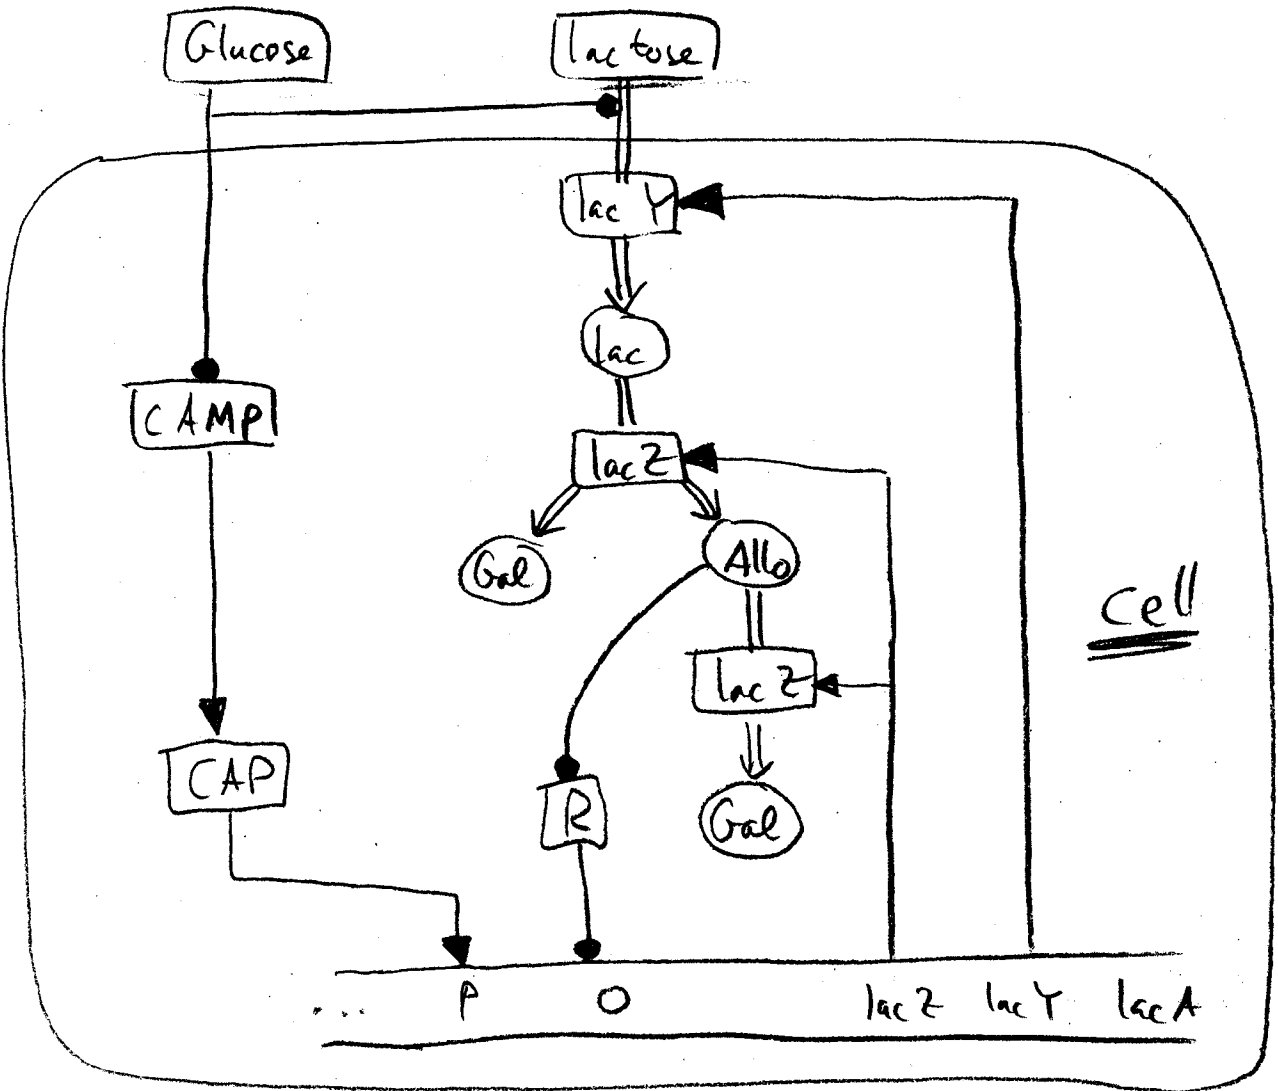 Glucose
lactose
lac Y
lac
CAMP
lac Z
Gal
Allo
cell
lac Z
CAP
R
Gal
... P O lac Z lac Y lac A